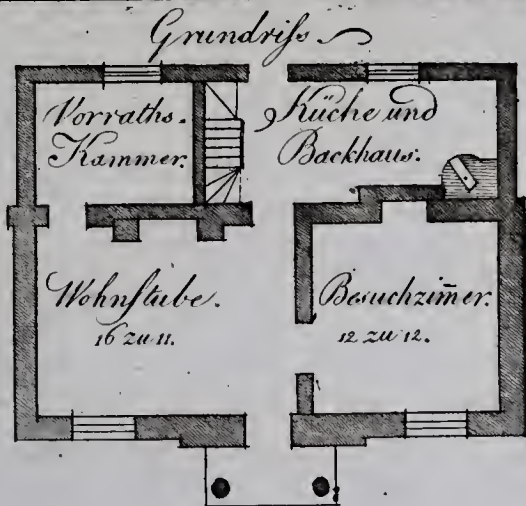 Grundriſs
Vorraths-
Kammer.
Küche und
Backhaus.
Wohnſtube.
16 zu 11.
Besuchzim̅er.
12 zu 12.